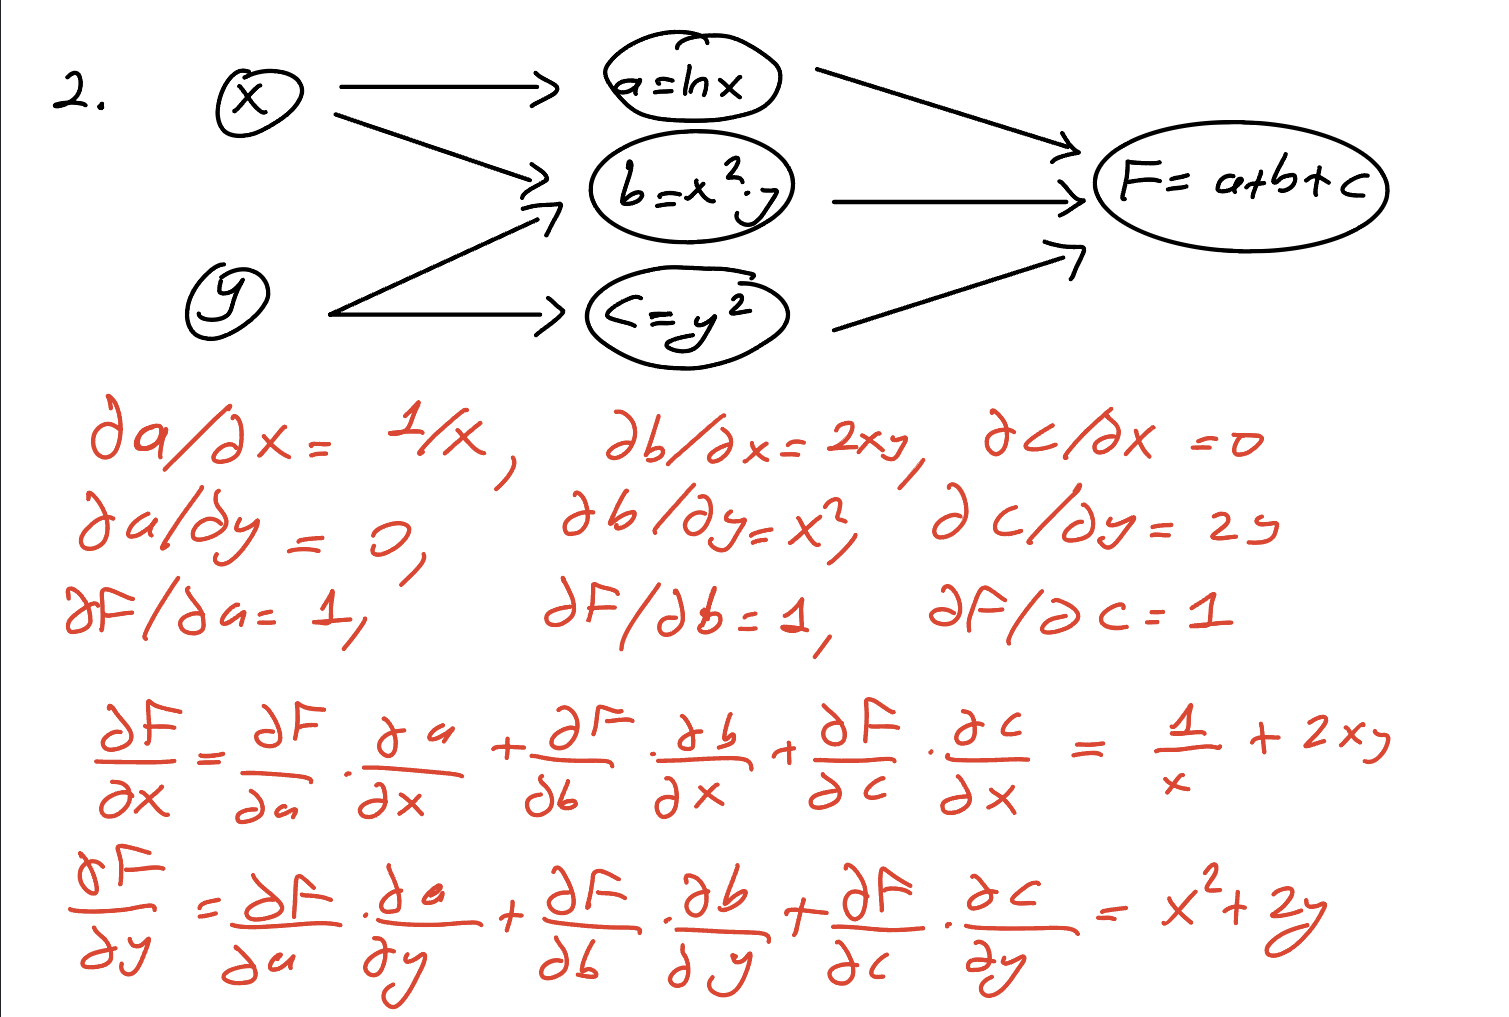 2. x a = ln x
b = x² · y F = a+b+c
y c = y²
∂a/∂x = 1/x, ∂b/∂x = 2xy, ∂c/∂x = 0
∂a/∂y = 0, ∂b/∂y = x², ∂c/∂y = 2y
∂F/∂a = 1, ∂F/∂b = 1, ∂F/∂c = 1
∂F/∂x = ∂F/∂a · ∂a/∂x + ∂F/∂b · ∂b/∂x + ∂F/∂c · ∂c/∂x = 1/x + 2xy
∂F/∂y = ∂F/∂a · ∂a/∂y + ∂F/∂b · ∂b/∂y + ∂F/∂c · ∂c/∂y = x² + 2y